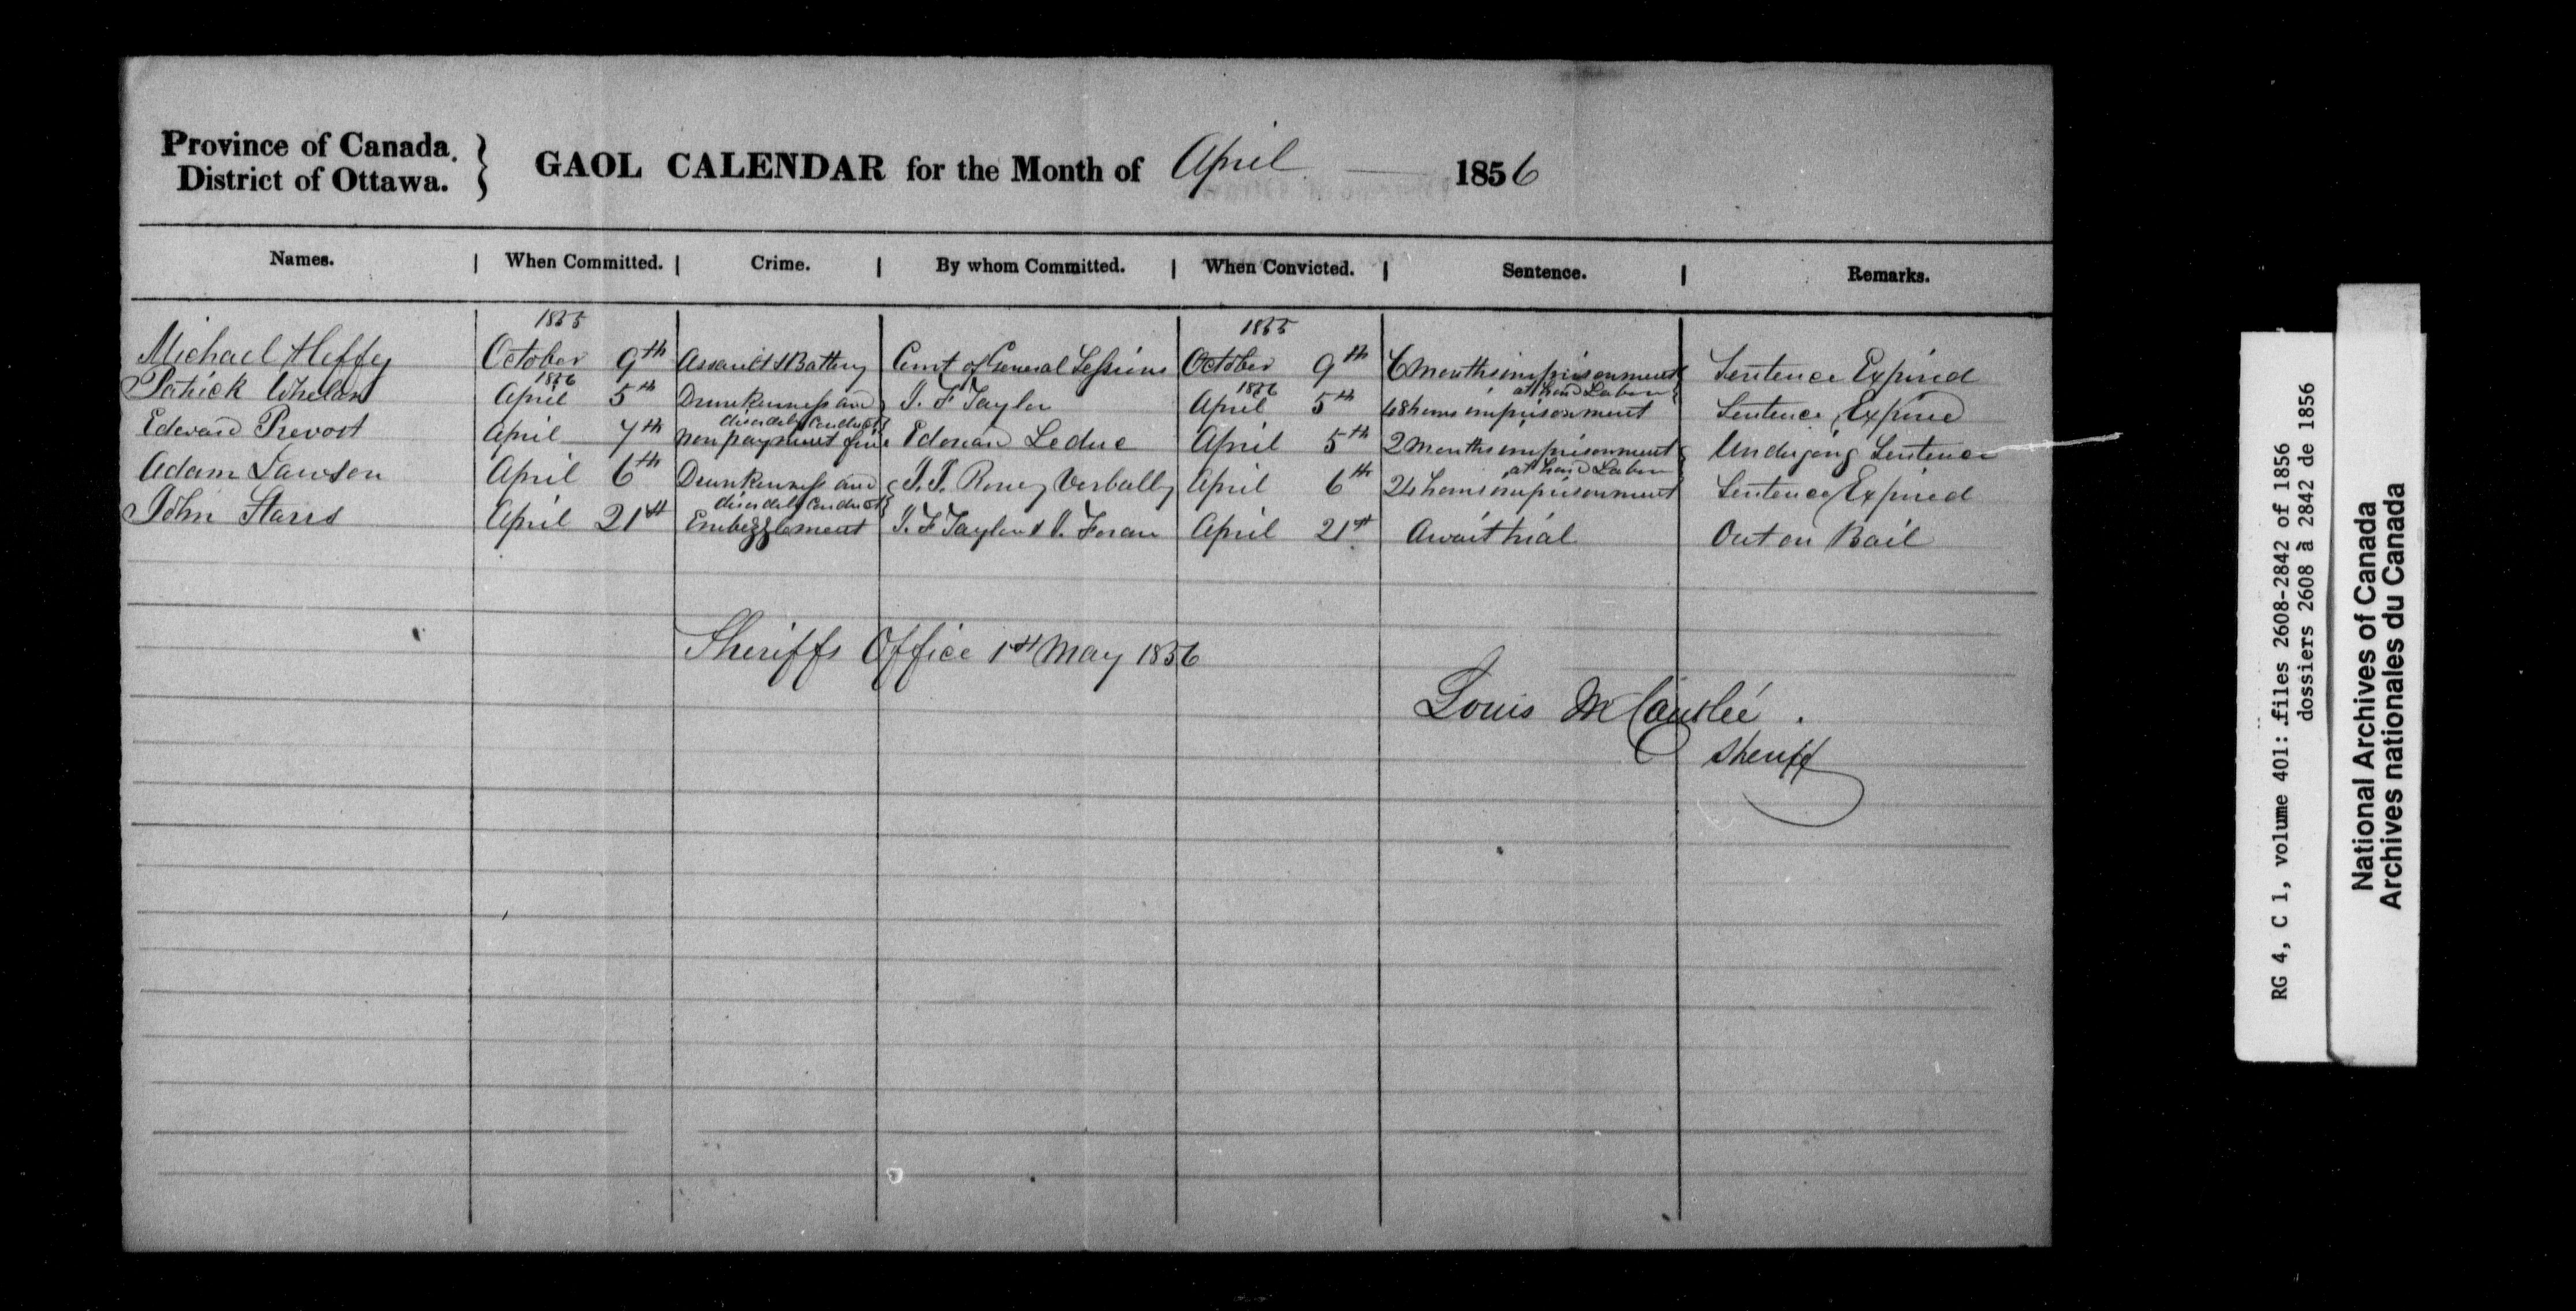 Province of Canada.
District of Ottawa.
GAOL CALENDAR for the Month of April 1856
Names. When Committed. Crime. By whom Committed. When Convicted. Sentence. Remarks.
1855 1855
Michael Heffy October 9th Assault & Battery Court of General Sessions October 9th 6 months imprisonment Sentence Expired
1856 1856 at hard Labour
Patrick Whelan April 5th Drunkenness and J. F Taylor April 5th 48 hours imprisonment Sentence Expired
disorderly conduct
Edward Prevost April 7th non payment fine Edouard Leduc April 5th 2 months imprisonment Undergoing Sentence
at hard Labour
Adam Lawson April 6th Drunkenness and Verbally April 6th 24 hours imprisonment Sentence Expired
disorderly conduct
John Starrs April 21st Embezzlement J. F Taylor & J. Foran April 21st Await trial Out on Bail
Sheriffs Office 1st May 1856
Louis M
Sheriff
RG 4, C 1, volume 401: files 2608-2842 of 1856
dossiers 2608 à 2842 de 1856
National Archives of Canada
Archives nationales du Canada